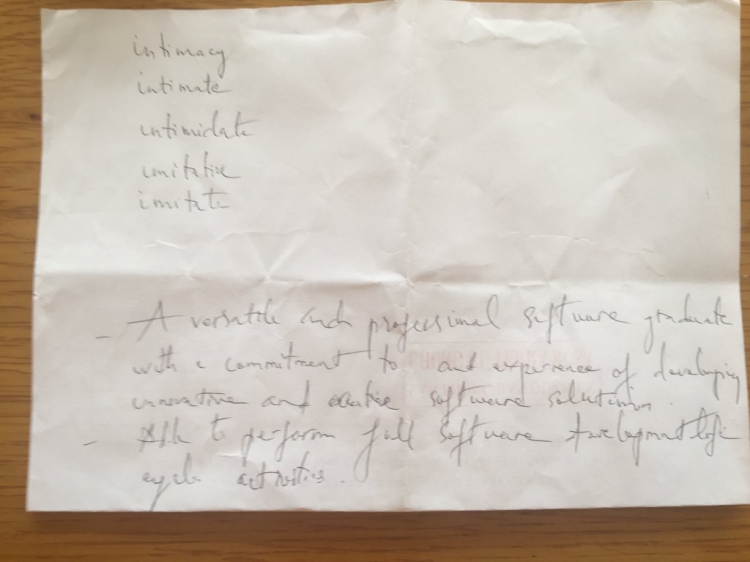 intimacy
intimate
intimidate
imitative
imitate
- A versatile and professional software graduate
with a commitment to and experience of developing
innovative and creative software solution.
- Able to perform full software development life
cycle activities.